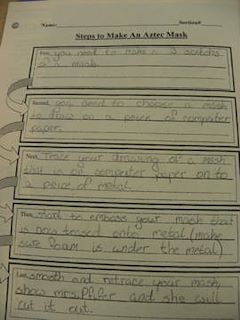 Name: Section#
Steps to Make An Aztec Mask
First, you need to make a 3 sketchs
of a mask.
Second, you need to choose a mask
to draw on a peice of computer
paper.
Next, Trace your drawing of a mask
that is on computer paper on to
a peice of metal.
Then, start to emboss your mask that
is now trased onto metal (make
sure foam is under the metal)
Last, smooth and retrace your mask,
show mrs. and she will
cut it out.